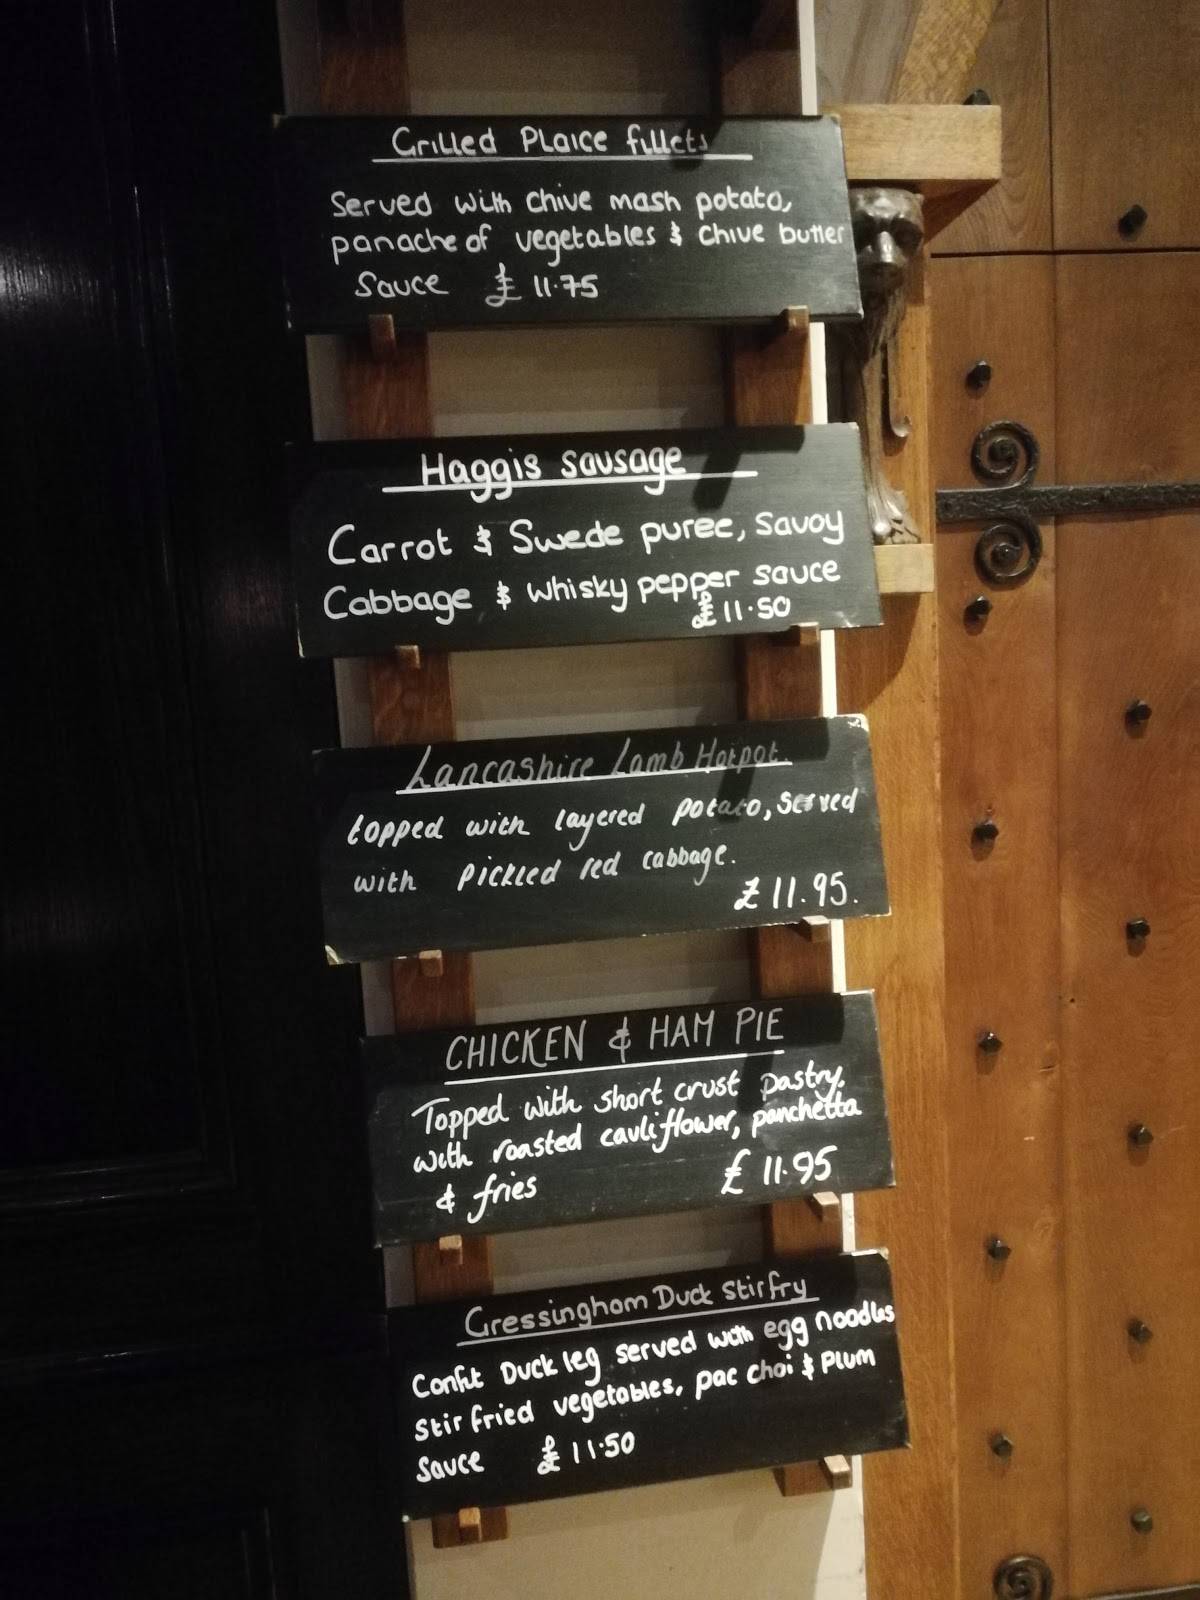 Grilled Plaice fillets
Served with chive mash potato,
panache of vegetables & chive butter
Sauce £ 11.75
Haggis sausage
Carrot & Swede puree, savoy
Cabbage & whisky pepper sauce
£11.50
Lancashire Lamb Hotpot.
topped with layered potato, served
with pickled red cabbage.
£ 11.95.
CHICKEN & HAM PIE
Topped with short crust pastry,
with roasted cauliflower, panchetta
& fries £ 11.95
Gressingham Duck stirfry
Confit Duck leg served with egg noodles
stir fried vegetables, pac choi & plum
sauce £ 11.50